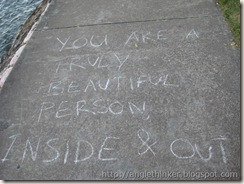 YOU ARE A
TRULY
BEAUTIFUL
PERSON,
INSIDE & OUT
http://englethinker.blogspot.com